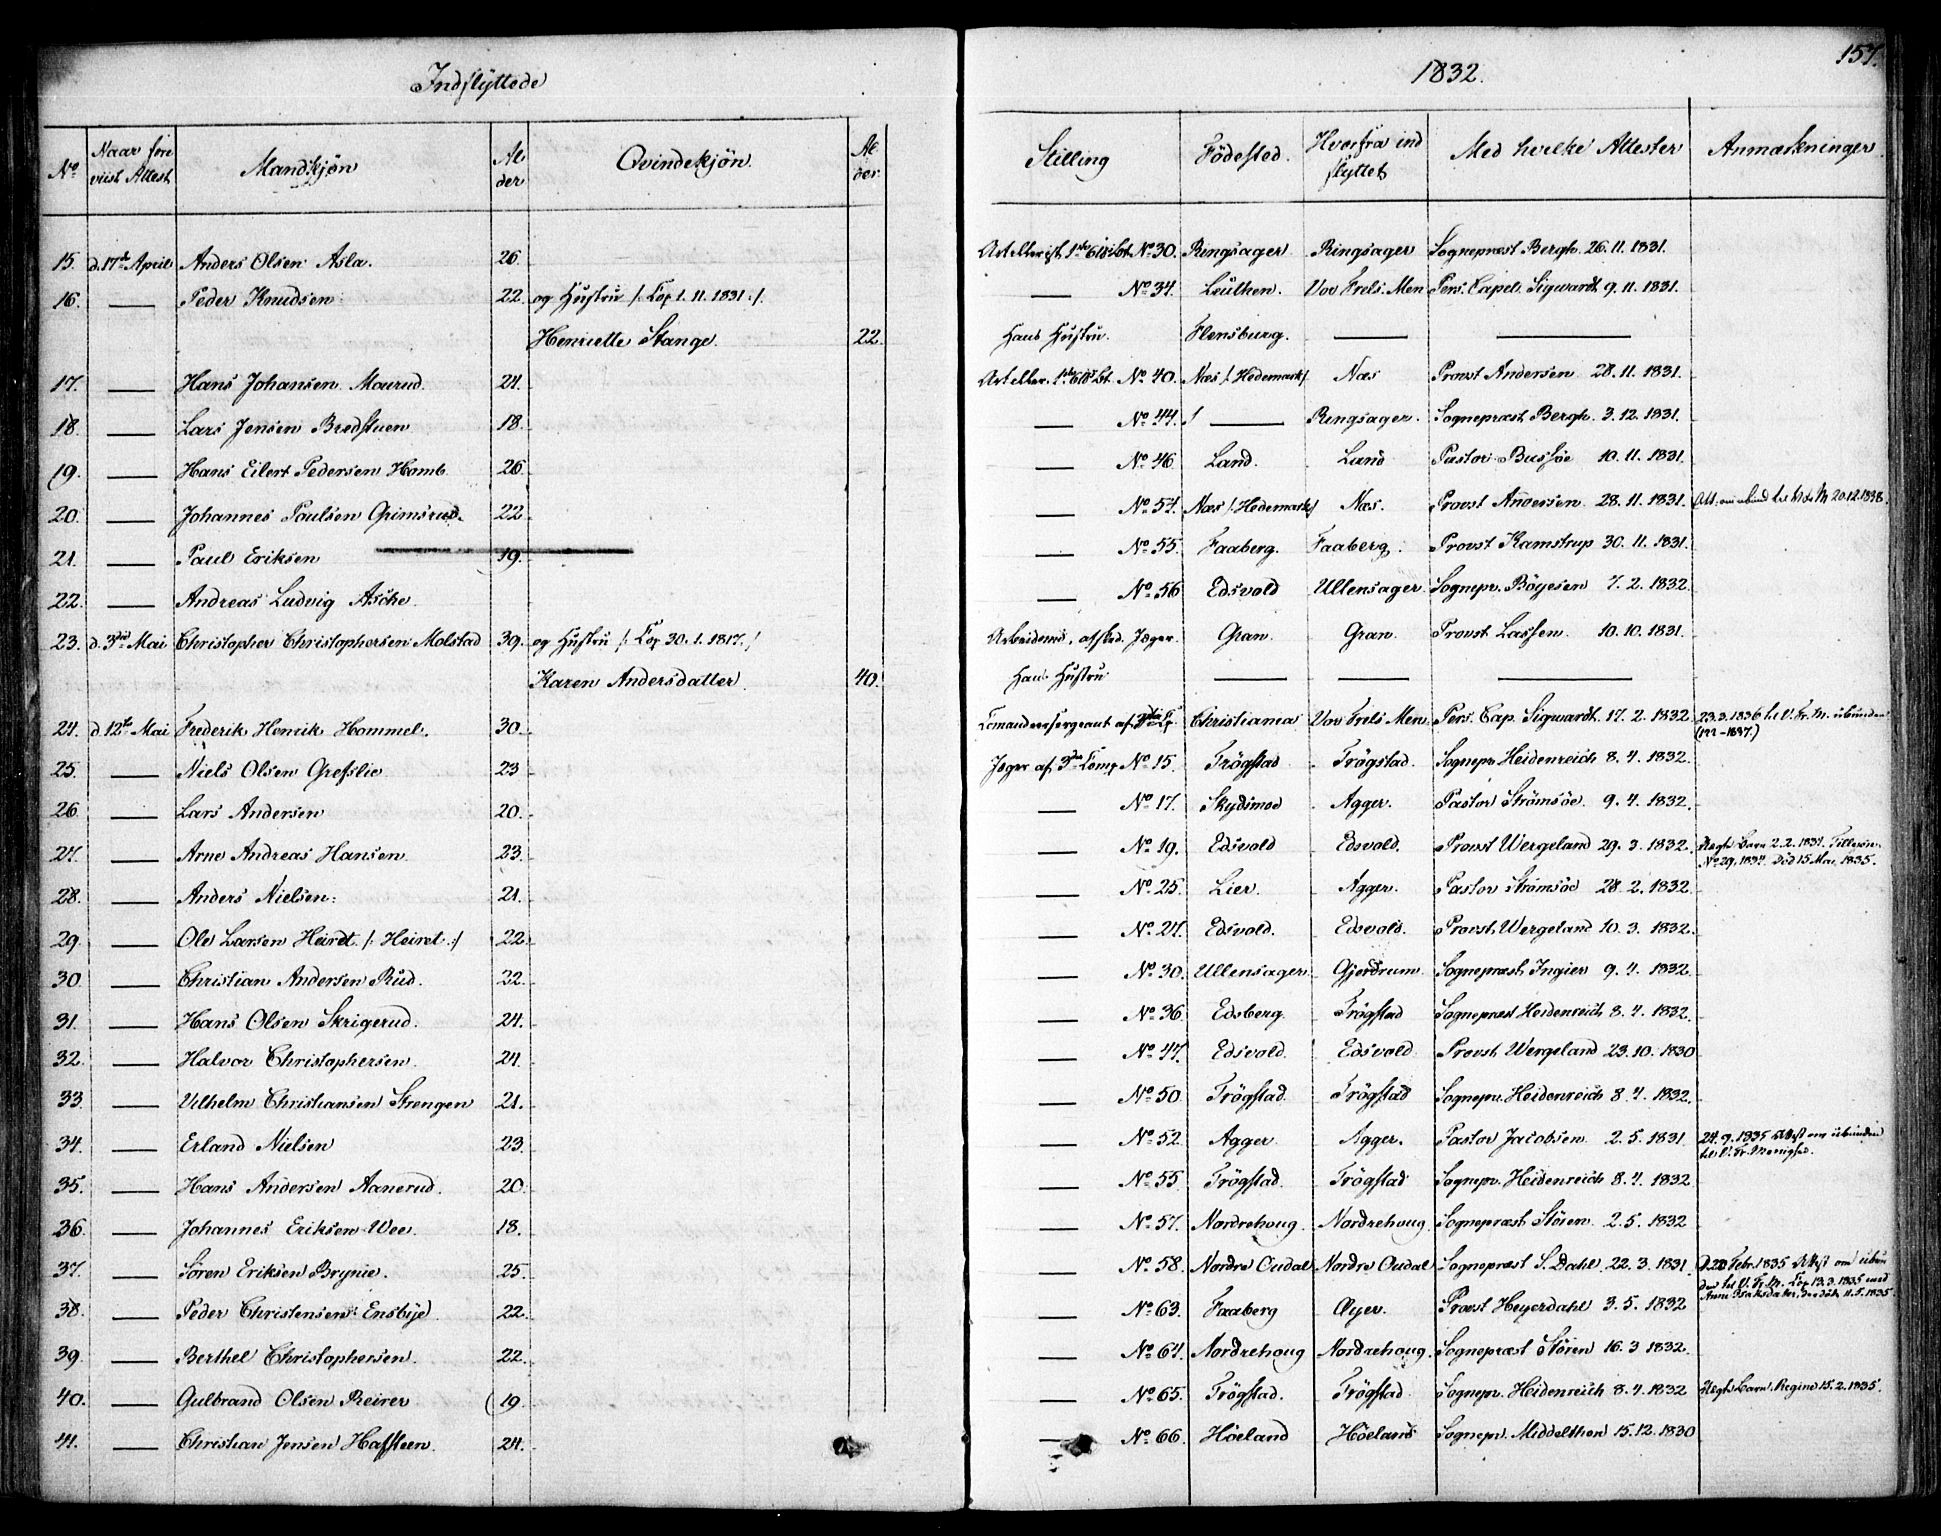 Indflyttede
1832.
157.
No Naar fore viist Attest Mandkjön Al der Qvindekjön. Al der. Stilling Födested. Hvorfra ind flyttet Med hvilke Attester Anmærkninger
15. d. 17de April Anders Olsen Asla. 26. Artillerist 1ste No 30. Ringsager Ringsager Sognepræst Bergh. 26. 11. 1831.
16. — Peder Knudsen 22. og Hustru /: Cop 1. 11. 1831 :/ — No 34. Leuthen. Vor Frels. Men Pers. Capel. Sigwardt 9. 11. 1831.
Henriette Stange. 22. Hans Hustru. Flensburg. — —
17. — Hans Johansen Maurud. 24. Artiller. 1ste No 40. Næs /: Hedemark :/ Næs Provst Andersen 28. 11. 1831.
18. — Lars Jensen Bredstuen 18. — No 44. — Ringsager. Sognepræst Bergh. 3. 12. 1831.
19. — Hans Eilert Pedersen Homb 26. — No 46. Land. Land Pastor Bussöe 10. 11. 1831.
20. — Johannes Paulsen Grimsrud. 22. — No 54. Næs /: Hedemark :/ Næs. Provst Andersen 28. 11. 1831. 20.12.1838.
21. — Paul Eriksen 19. — No 55. Faaberg. Faaberg. Provst Kamstrup 30. 11. 1831.
22. — Andreas Ludvig Asche. — No 56. Edsvold Ullensager. Sognepr. Böyesen 7. 2. 1832
23. d. 3die Mai Christopher Christophersen Molstad 39. og Hustru /: Cop 30. 1. 1817. :/ Arbeidsmd. afsked. Jæger. Gran. Gran. Provst Lassen. 10. 10. 1831.
Karen Andersdatter. 40. Hans Hustru — — —
24. d. 12te Mai Frederik Henrik Hommel. 30. Comandeersergeant af 3die Cp. Christiania Vor Frels. Men. Pers. Cap. Sigwardt. 17. 2. 1832 23.3.1836 til V. Fr. M. ubunden
25. — Niels Olsen Grefslie 23. Jæger af 3die Comp No 15. Trögstad Trögstad. Sognepr. Heidenreich 8. 4. 1832.
26. — Lars Andersen 20. — No 17. Skydimoe Agger. Pastor Strömsöe. 9. 4. 1832.
27. — Arne Andreas Hansen. 23. — No 19. Edsvold Edsvold. Provst Wergeland 29. 3. 1832. Uægt. Barn 2. 2. 1834. No 29. 1834. Död 15 Mai 1835.
28. — Anders Nielsen. 21. — No 25. Lier. Agger. Pastor Strömsöe 28. 2. 1832.
29. — Ole Larsen Heirdt. /: Heiret :/ 22. — No 27. Edsvold. Edsvold. Provst. Wergeland 10. 3. 1832.
30. — Christian Andersen Rud. 22. — No 30. Ullensager Gjerdrum Sognepræst Ingier 9. 4. 1832.
31. — Hans Olsen Skrigerud. 24. — No 36. Edsberg. Trögstad Sognepræst Heidenreich 8. 4. 1832.
32. — Halvor Christophersen. 24. — No 47. Edsvold. Edsvold Provst. Wergeland 23. 10. 1830
33. — Vilhelm Christiansen Strengen 21. — No 50. Trögstad. Trögstad Sognepr. Heidenreich 8. 4. 1832.
34. — Erland Nielsen 23. — No 52. Agger Agger. Pastor Jacobsen 2. 5. 1831. 24. 9. 1835 Attest om ubunden til V. Fr. Menighed.
35. — Hans Andersen Aanerud. 20. — No 55. Trögstad. Trögstad Sognepr. Heidenreich 8. 4. 1832
36. — Johannes Eriksen Wee. 18. — No 57. Nordrehoug. Nordrehoug. Sognepræst Stören. 2. 5. 1832
37. — Sören Eriksen Brynie. 25. — No 58. Nordre Oudal Nordre Oudal Sognepræst S. Dahl. 22. 3. 1831. D. 22 Febr. 1835 Attest om ubun den til V. Fr. M. Cop 13. 3. 1835 med Anne Isaksdatter, 11. 5. 1835.
38. — Peder Christensen Ensbye 22. — No 63. Faaberg Öyer. Provst Heyerdahl 3. 5. 1832
39. — Berthel Christophersen. 22. — No 64. Nordrehoug Nordrehoug. Sognepræst Stören 16. 3. 1832.
40. — Gulbrand Olsen Reirer 19. — No 65. Trögstad. Trögstad Sognepr. Heidenreich 8. 4. 1832 Uægt. Barn. Regine 15. 2. 1835.
41. — Christian Jensen Hafsteen. 24. — No 66. Höeland Höeland Sognepr. Middelthon 15. 12. 1830